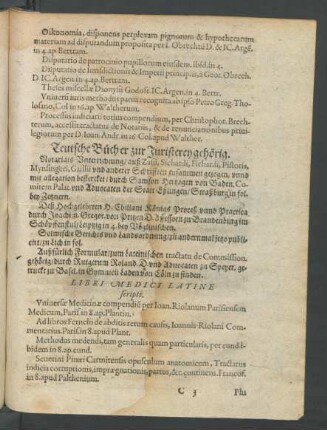 Oikonomia, disponens perplexam pignorum & hypothecarum
materiam ad disputandum proposita per S. Obrechtũ D. & IC. Argẽ.
in 4. ap. Bertram.
Disputatio de patrocinio pupillorum eiusdem. ibid. in 4.
Disputatio de Iurisdictionis & Imperii principiis, à Geor. Obrech.
D. IC. Argen. in 4. ap. Bertr.
Theses miscellæ Dionysii Godofr. IC. Argen. in 4. Bertr.
Vniversi iuris methodus parva recognita ab ipso Petro Greg. Tho-
losano, Col. in 8. ap. Waltherum.
Processus indiciarii totius compendium, per Christophor. Brech-
terum, accessit tractatus de Notariis, & de renunciationibus privi-
legiorum per D. Ioan. Andr. in 16. Col. apud Walther.
Teutsche Bücher zur Juristerey gehörig.
Notariats Unterrichtung, auß Zasii, Sichardi, Fichardi, Pistoris,
Mynsingeri, Gaslii und anderer Schrifften zusammen gezogen, vnnd
mit allegatien bestercket: durch Samson Hertzogen von Baden, Co-
mitem Palat. vnd Advocaten der Statt Eßlingen, Straßburg in fol.
bey Jennaer.
Deß Hochgelehrten H. Chiliani Königs Proceß vnnd Practica
durch Joachim Greger, von Pritzen D. Assessorn zu Brandenburg im
Schöppenstuhl Leipzig in 4. bey Vögelinischen.
Solmische Gerichts vnd Landsordnung, zu andernmal jetzo publi-
ciert, zu Lich in fol.
Außführlich Formular, zum lateinischen tractatu de Commission.
gehörig, durch Rutgerum Roland D. vnd Advocaten zu Speyer, ge-
truckt zu Basel, in Gymnici laden von Cöln zu finden.
LIBRI MEDICI LATINE
scripti.
Vniversæ Medicinæ compendiũ per Ioan. Riolanum Parisiensem
Medicum, Paris. in 8. ap. Plantin.
Ad libros Fernelii de abditis rerum causis, Ioannis Riolani Com-
mentarius, Paris. in 8. apud Plant.
Methodus medendi, tam generalis quam particularis, per eundẽ
bidem in 8. ap. eund.
Severini Pinæi Carnutensis opusculum anatomicum, Tractatus
indicia corruptionis, imprægnationis, partus, &c. continens. Francof.
in 8. apud Palthenium.
C 3 Phi